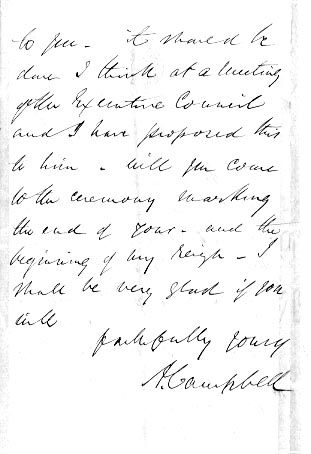 to you - it should be
done I think at a meeting
of the Executive Council
and I have proposed this
to him - will you come
to the ceremony marking
the end of your - and the
beginning of my reign - I
shall be very glad if you
will
faithfully yours
A. Campbell